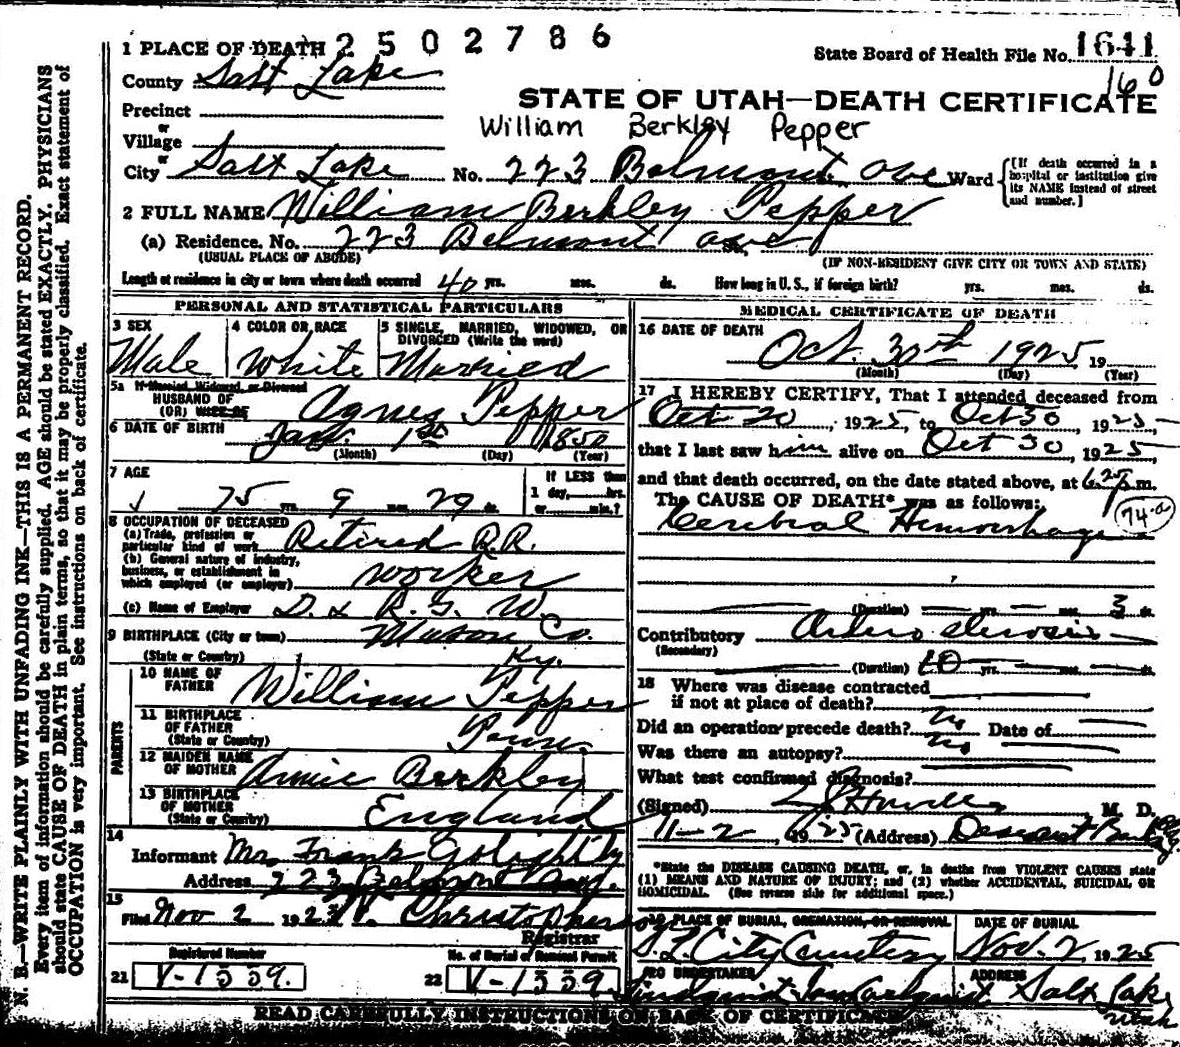 1 PLACE OF DEATH 2502786
State Board of Health File No. 1641
160
County Salt Lake
STATE OF UTAH—DEATH CERTIFICATE
Precinct
William Berkley Pepper
or
Village
or
City Salt Lake No. 223 Belmont Ave Ward
[If death occurred in a hospital or institution give its NAME instead of street and number.]
2 FULL NAME William Berkley Pepper
(a) Residence. No. 223 Belmont Ave
(USUAL PLACE OF ABODE) (IF NON-RESIDENT GIVE CITY OR TOWN AND STATE)
Length of residence in city or town where death occurred 40 yrs. mos. ds. How long in U. S., if foreign birth? yrs. mos. ds.
PERSONAL AND STATISTICAL PARTICULARS
3 SEX
Male
4 COLOR OR RACE
White
5 SINGLE, MARRIED, WIDOWED, OR
DIVORCED (Write the word)
Married
5a If Married, Widowed, or Divorced
HUSBAND OF
(OR) WIFE OF Agnes Pepper
6 DATE OF BIRTH Jan. 1st 1850
(Month) (Day) (Year)
7 AGE
75 yrs. 9 mos. 29 ds.
If LESS than
1 day, hrs.
or min.?
8 OCCUPATION OF DECEASED
(a) Trade, profession or
particular kind of work Retired R.R.
(b) General nature of industry,
business, or establishment in
which employed (or employer) worker
(c) Name of Employer D. & R. G. W.
9 BIRTHPLACE (City or town) Mason Co.
(State or Country) Ky.
PARENTS
10 NAME OF
FATHER William Pepper
11 BIRTHPLACE
OF FATHER
(State or Country) Penn.
12 MAIDEN NAME
OF MOTHER Annie Berkley
13 BIRTHPLACE
OF MOTHER
(State or Country) England
14
Informant Mrs Frank Golightly
Address 223 Belmont Ave.
15
Filed Nov 2 1925 Christopherson
Registrar
Registered Number
21 V-1339.
No. of Burial or Removal Permit
22 V-1339
MEDICAL CERTIFICATE OF DEATH
16 DATE OF DEATH
Oct. 30th 1925, 19
(Month) (Day) (Year)
17 I HEREBY CERTIFY, That I attended deceased from
Oct 20, 1925, to Oct 30, 1925
that I last saw him alive on Oct 30, 1925,
and that death occurred, on the date stated above, at 6.25 p.m.
The CAUSE OF DEATH* was as follows:
Cerebral Hemorrhage 74-a
(Duration) yrs. mos. 3 ds.
Contributory Arterio sclerosis
(Secondary)
(Duration) 10 yrs. mos. ds.
18 Where was disease contracted
if not at place of death?
Did an operation precede death? no Date of
Was there an autopsy? no
What test confirmed diagnosis?
(Signed) M. D.
11-2, 1925 (Address) Deseret Bank Bldg.
*State the DISEASE CAUSING DEATH, or, in deaths from VIOLENT CAUSES state
(1) MEANS AND NATURE OF INJURY; and (2) whether ACCIDENTAL, SUICIDAL OR
HOMICIDAL. (See reverse side for additional space.)
19 PLACE OF BURIAL, CREMATION, OR REMOVAL
S. L. City Cemetery
DATE OF BURIAL
Nov. 2 1925
20 UNDERTAKER
ADDRESS
Salt Lake
Utah
READ CAREFULLY INSTRUCTIONS ON BACK OF CERTIFICATE
N. B.—WRITE PLAINLY WITH UNFADING INK—THIS IS A PERMANENT RECORD.
Every item of information should be carefully supplied. AGE should be stated EXACTLY. PHYSICIANS
should state CAUSE OF DEATH in plain terms, so that it may be properly classified. Exact statement of
OCCUPATION is very important. See instructions on back of certificate.